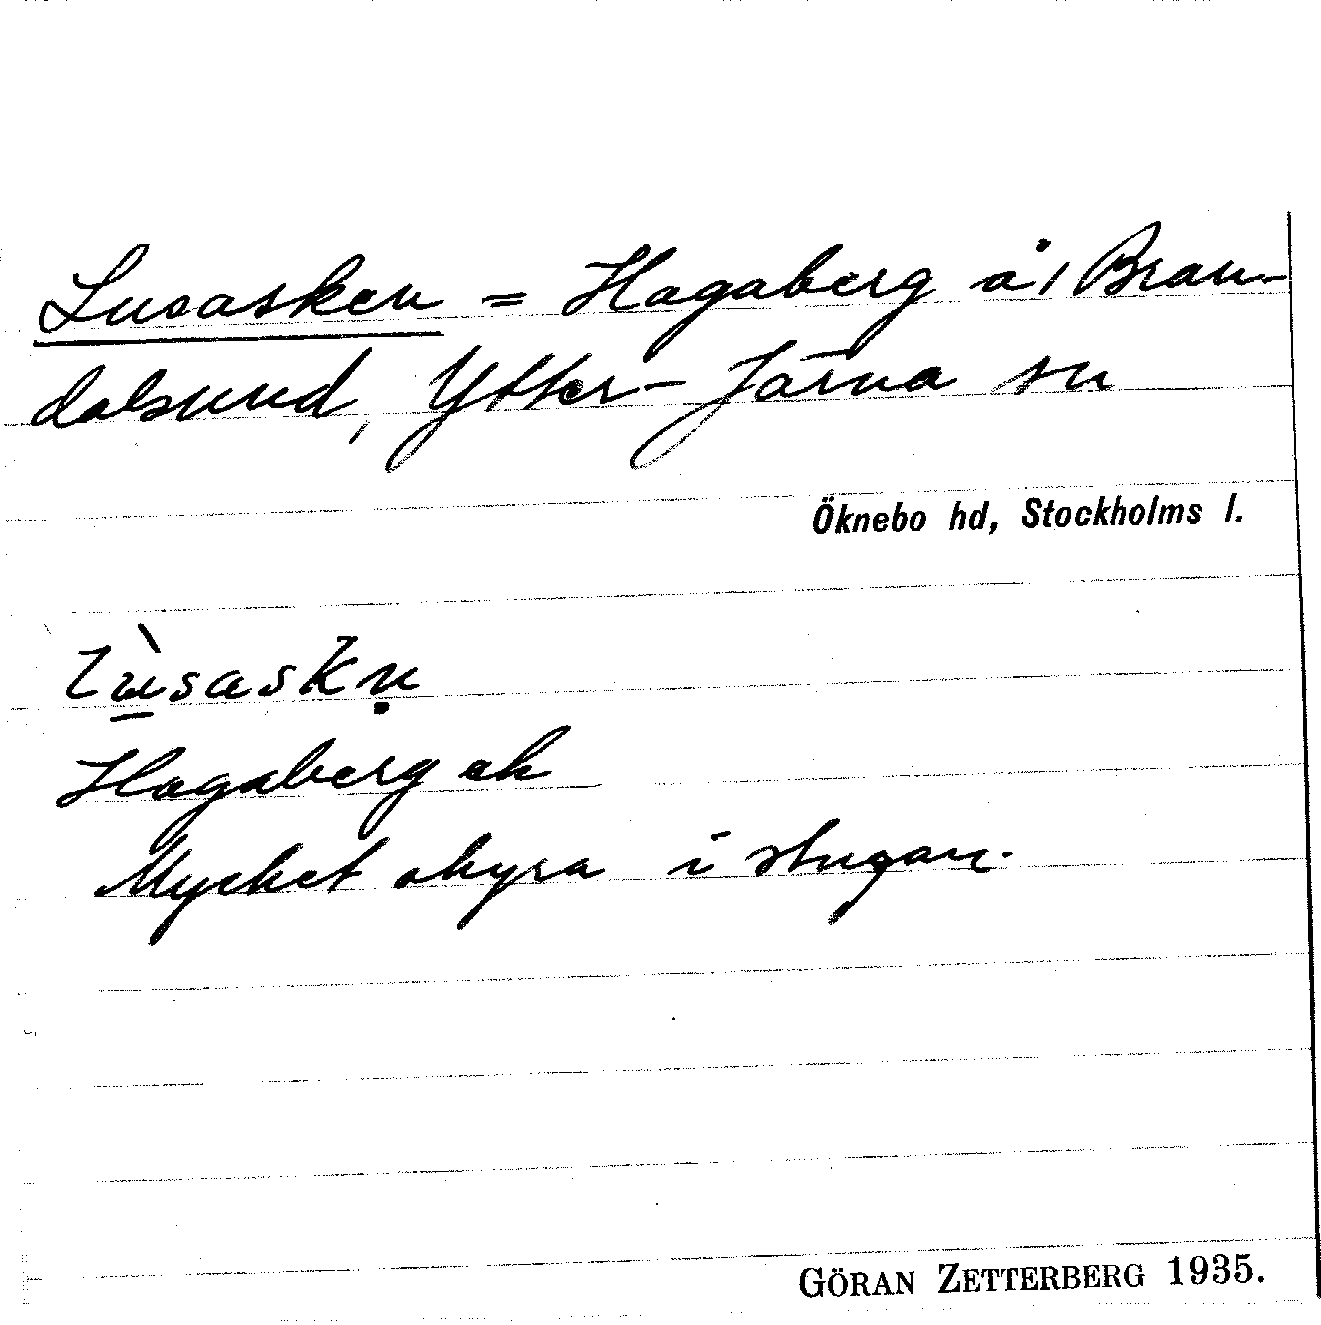 Lusasken = Hagaberg å/ Bran-
dalsund, Ytter-Järna sn
Öknebo hd, Stockholms l.
lùsaskṇ
Hagaberg ek
Mycket ohyra i stugan.
GÖRAN ZETTERBERG 1935.